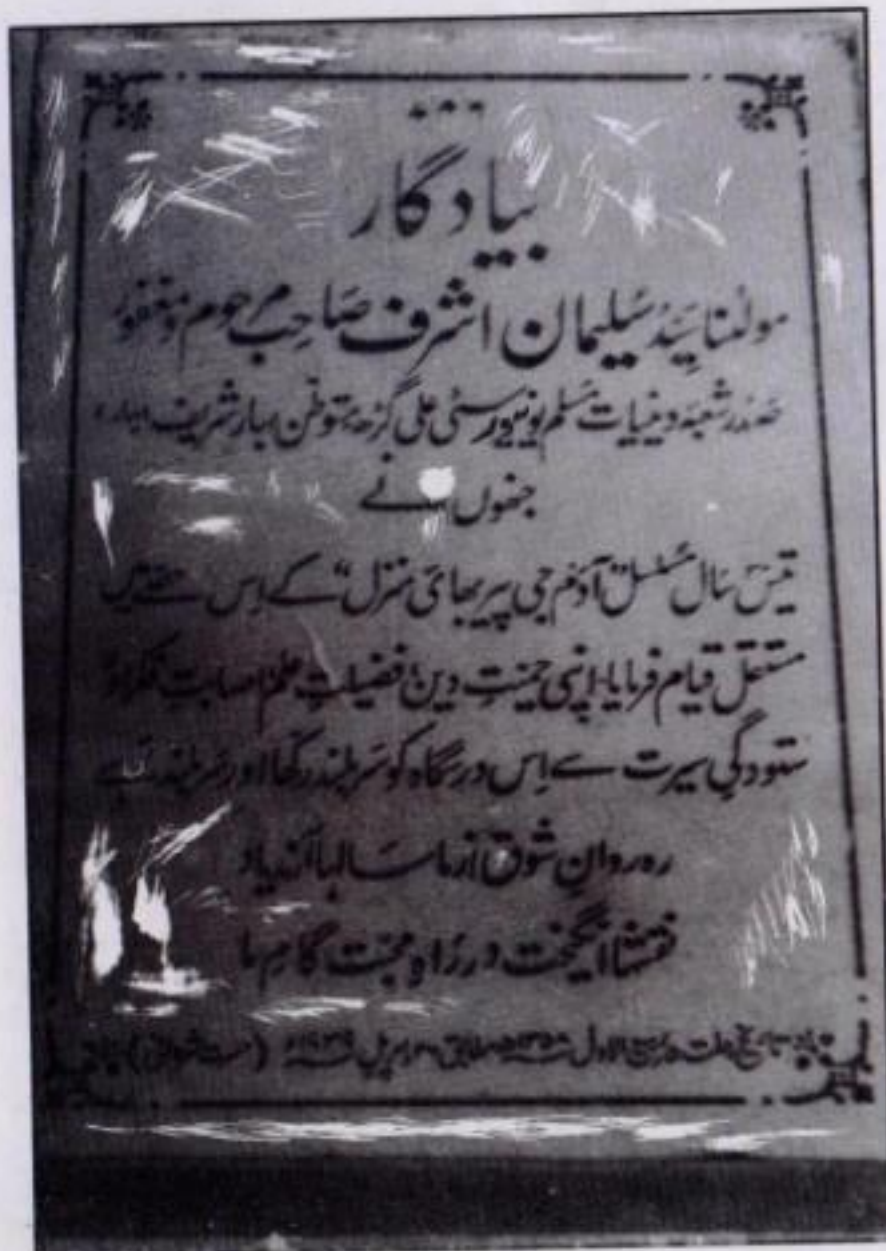 بیادگار
مولٰنا سید سلیمان اشرف صاحب مرحوم و مغفور
صدر شعبہ دینیات مسلم یونیورسٹی علی گڑھ متوطن بہار شریف بہار
جنھوں نے
تیس سال مسلسل آدم جی پیر بھائی منزل“ کے اس حصے میں
مستقل قیام فرمایا اپنی حمیت دین، فضیلتِ علم اصابت فکر اور
ستودگی سیرت سے اِس درسگاہ کو سربلند رکھا اور سربلند رہے
رہ روانِ شوق از ما سالہا آرند یاد
نقشہا انگیخت در راہِ محبت گامِ ما
تاریخ ربیع الاول ۱۳۵۸ھ مطابق اپریل ۱۹۳۹ء